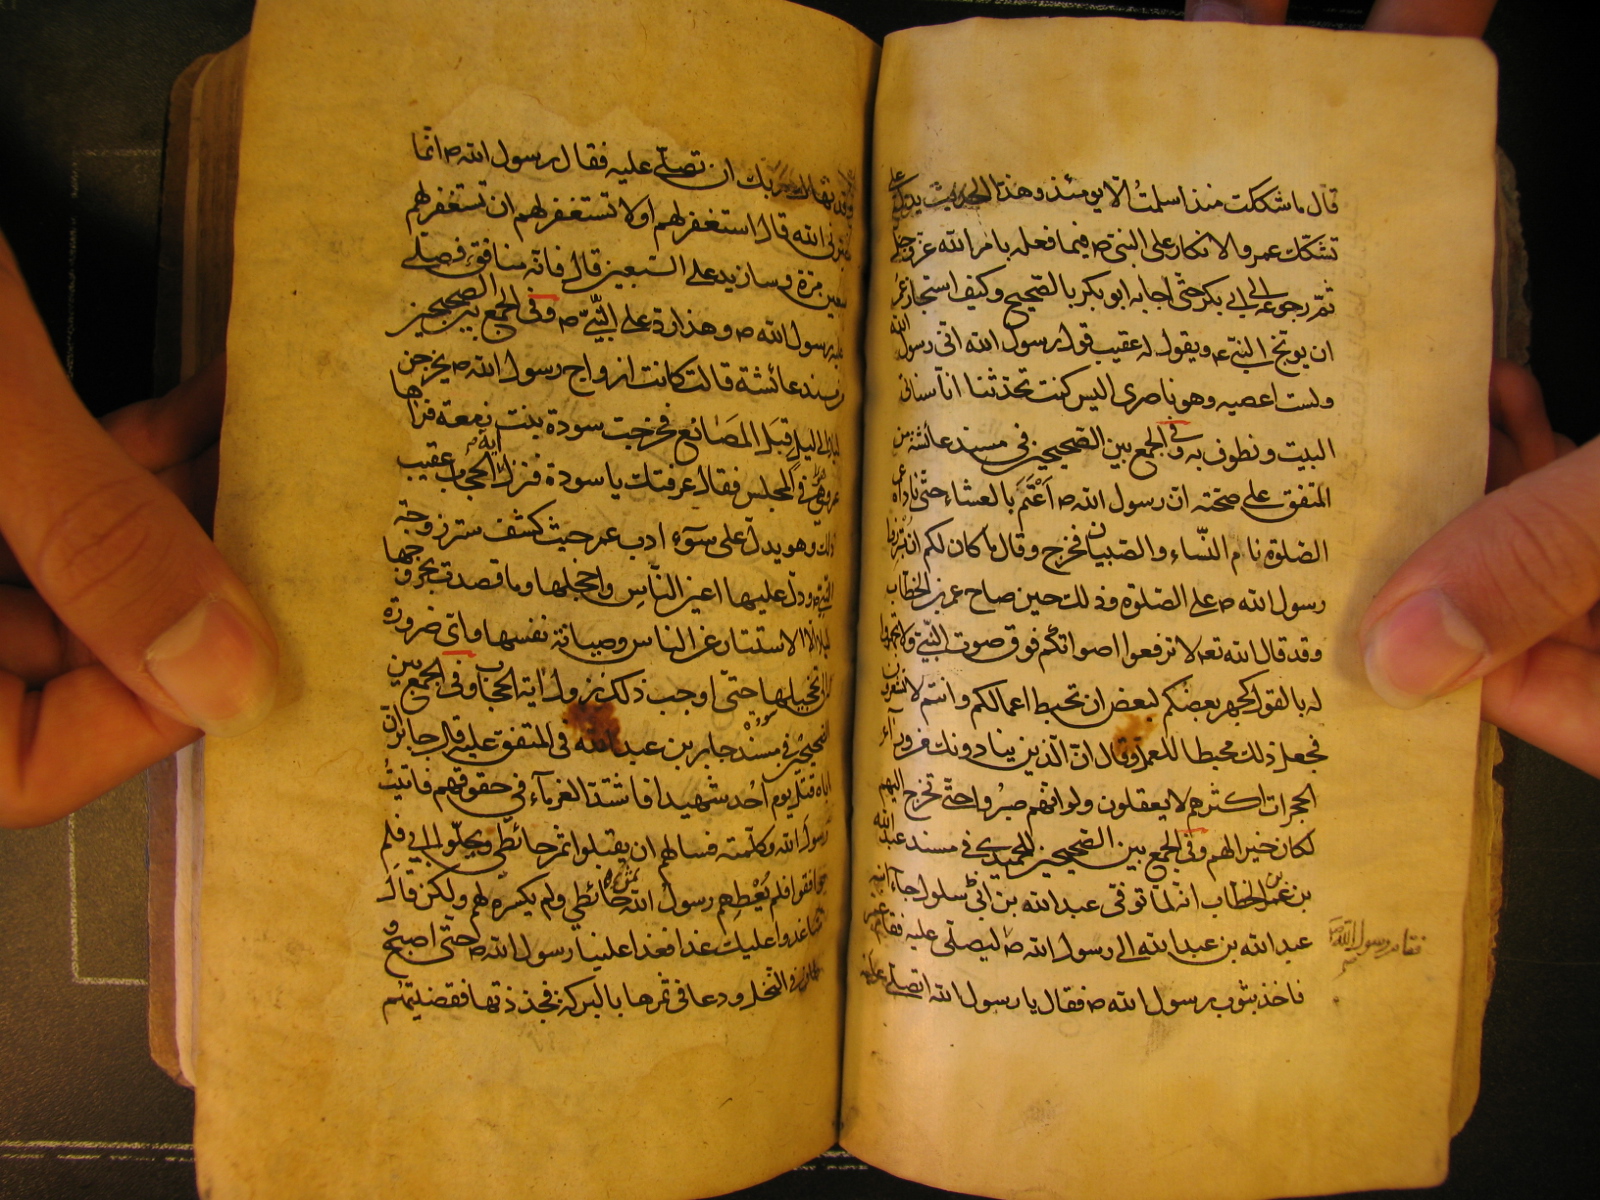 قال ما شككت منذ اسلمتُ الا يومئذ وهذا الحديث يدل على
تشكك عمر والانكار على النبي ص فيما فعله بامر الله عز وجل
ثم رجوعه الى ابي بكر حتى اجابه ابو بكر بالصحيح وكيف استجاز عمر
ان يوبخ النبي ص ويقول له عقيب قول رسول الله انى رسول الله
ولست اعصيه وهو ناصرى اليس كنت تحدثنا انا سناتى
البيت ونطوف به وفى الجمع بين الصحيحين فى مسند عائشة من
المتفق على صحته ان رسول الله ص اَعْتَمَ بالعشاء حتى ناداه عمر
الصلوة نام النساء والصبيان فخرج وقال ما كان لكم ان تنزروا
رسول الله ص على الصلوة وذلك حين صاح عمر بن الخطاب
وقد قال الله تعه لا ترفعوا اصواتكم فوق صوت النبى ولا تجهروا
له بالقول كجهر بعضكم لبعض ان تحبط اعمالكم وانتم لا تشعرون
فجعل ذلك محبطا للعمل وقال ان الذين ينادونك من وراء
الحجرات اكثرهم لا يعقلون ولو انهم صبروا حتى تخرج اليهم
لكان خيرا لهم وفى الجمع بين الصحيحين للحميدى فى مسند عبد الله
بن عمر بن الخطاب انه لما توفى عبد الله بن ابى سلول جاء ابنه
عبد الله بن عبد الله الى رسول الله ص ليصلى عليه فقام عمر
فقام رسول الله ص
فاخذ بثوب رسول الله ص فقال يا رسول الله اتصلى عليه
وقد نهاك ربك ان تصلى عليه فقال رسول الله ص انما
خيرنى الله قال استغفر لهم او لا تستغفر لهم ان تستغفر لهم
سبعين مرة وسازيد على السبعين قال فانه منافق فصلى
عليه رسول الله ص وهذا رد على النبى ص وفى الجمع بين الصحيحين
من مسند عائشة قالت كانت ازواج رسول الله ص يخرجن
ليلا الى ليل قبل المصانع فخرجت سودة بنت زمعة فراها
عمر وهو فى المجلس فقال عرفتك يا سودة فنزل اية الحجاب عقيب
ذلك وهو يدل على سوء ادب عمر حيث كشف ستر زوجة
النبى ص ودل عليها اعين الناس واخجلها وما قصدت بخروجها
ليلا الا الاستتار عن الناس وصيانة نفسها واى ضرورة
له الى تخجيلها حتى اوجب ذلك نزول اية الحجاب وفى الجمع بين
الصحيحين فى مسند جابر بن عبد الله فى المتفق عليه قال جابر ان
اباه قتل يوم اُحد شهيدا فاشتد الغرماء فى حقوقهم فاتيتُ
رسول الله وكلمته فسالهم ان يقبلوا ثمر حائطى ويحلّوا ابى فلم
يوافقوا فلم يُعْطِهم رسول الله ثمرة حائطى ولم يكسره لهم ولكن قال
ساغدوا عليك غدا فغدا علينا رسول الله ص حتى اصبح
فطاف فى النخل ودعا فى ثمرها بالبركة فجذذتها فقضيتهم